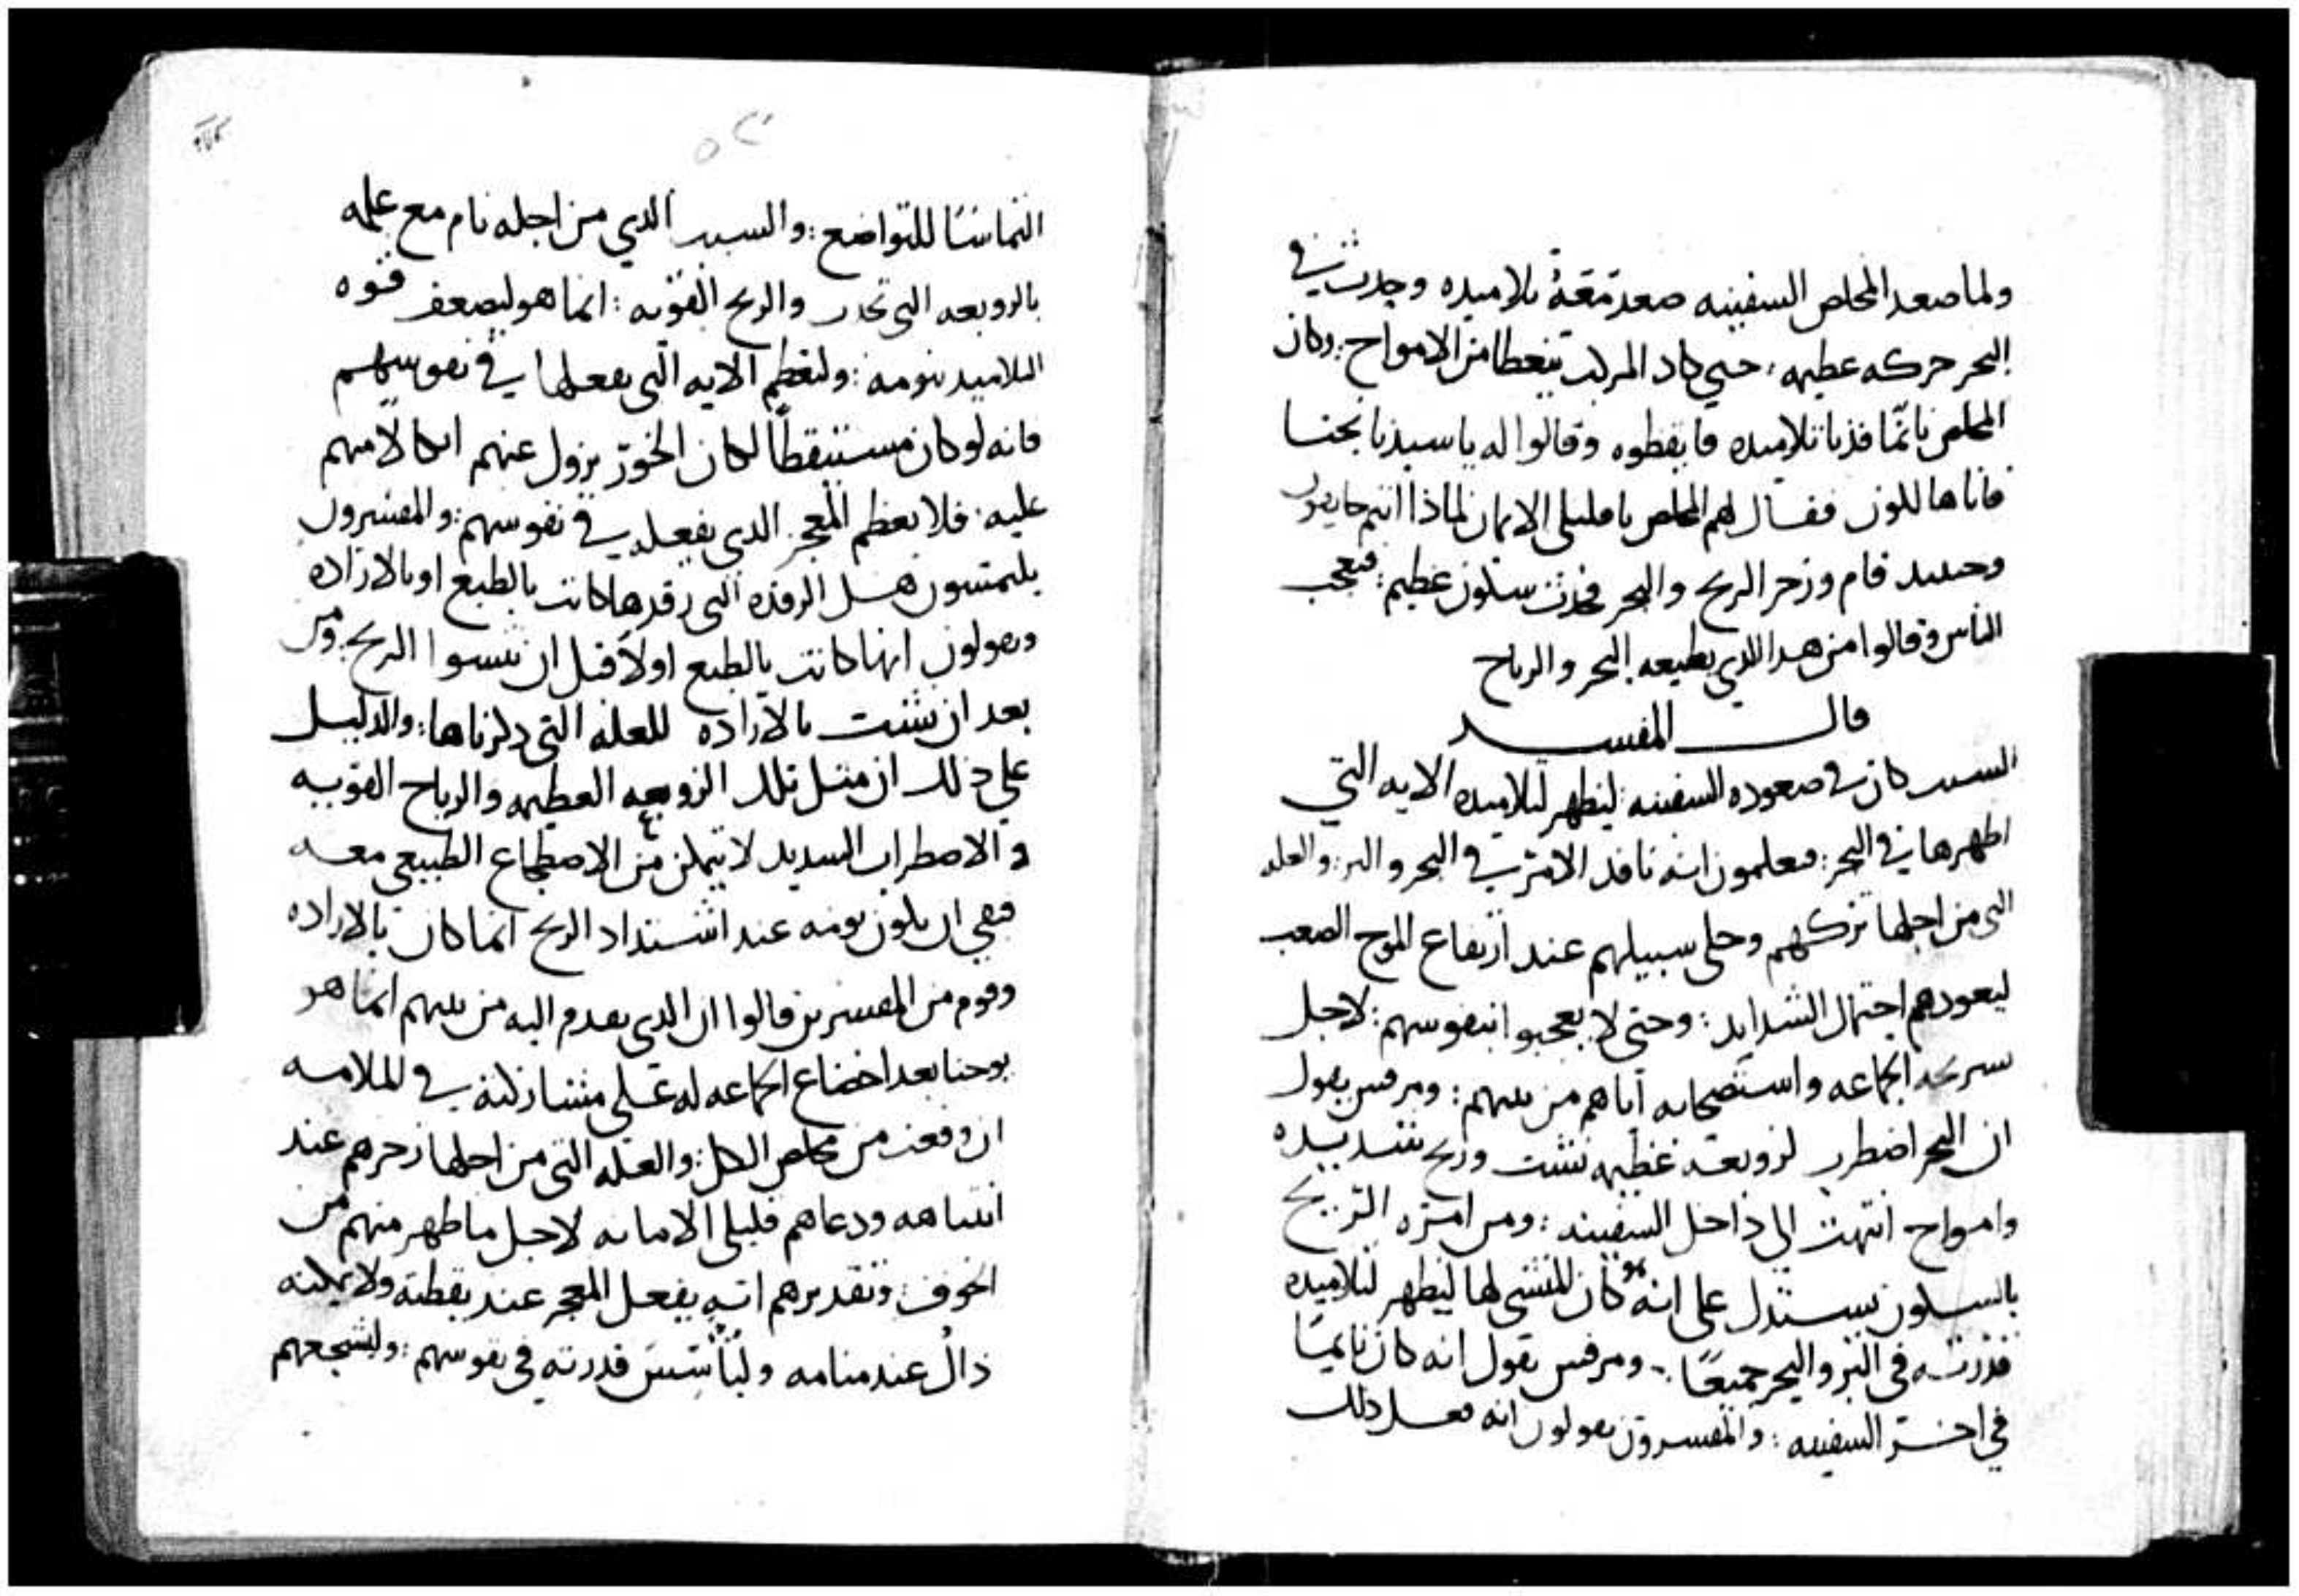 ولما صعد المخلص السفينه صعد معه تلاميده وحدث في
البحر حركه عظيمه حتي كاد المركب يتغطا من الامواج وكان
المخلص نائمًا فدنا تلاميده فايقظوه وقالوا له ياسيدنا نجنا
فاناهالكون فقال لهم المخلص ياقليلي الايمان لماذا انتم خايفون
وحينيد قام وزجر الريح والبحر فحدث سكون عظيم : فتعجب
الناس وقالوا من هدا الدي يطيعه البحر والرياح
قال المفسر
السبب كان في صعوده السفينه ليظهر لتلاميده الايه التي
اظهرها في البحر : فيعلمون انه نافد الامر في البحر والبر : والعله
التي من اجلها تركهم وخلى سبيلهم عند ارتفاع الموج الصعب
ليعودهم احتمال الشدايد : وحتى لا يعجبوا بنفوسهم : لاجل
تسريحه الجماعه واستصحابه اياهم من بينهم : ومرقس يقول
ان البحر اضطرب لزوبعه عظيمه نشت وريح شديده
وامواج انتهت الى داخل السفينه : ومن امره الريح
بالسكون يستدل على انه هو كان المنشي لها ليظهر لتلاميده
قدرته في البر والبحر جميعًا : ومرقس يقول انه كان نايمًا
في اخر السفينه : والمفسرون يقولون انه فعل دلك
التماسًا للتواضع : والسبب الدي من اجله نام مع علمه
بالزوبعه التي تحدث والريح القويه : انما هو ليضعف قوه
التلاميد بنومه : ولتعظم الايه التي يفعلها في نفوسهم
فانه لو كان مستيقظًا لكان الخوف يزول عنهم اتكالًا منهم
عليه : فلا يعظم المعجز الدي يفعله في نفوسهم : والمفسرون
يلتمسون هل الرقده التي رقدها كانت بالطبع او بالاراده
ويقولون انها كانت بالطبع اولًا قبل ان تنسوا الريح : ومن
بعد ان نشت بالاراده للعله التي دكرناها : والدليل
علي ذلك ان مثل تلك الزوبعه العظيمه والرياح القويه
والاضطراب الشديد لا يتمكن من الاضطجاع الطبيعي معه
فبقي ان يكون نومه عند اشتداد الريح انما كان بالاراده
وقوم من المفسرين قالوا ان الدي يقدم اليه من بينهم انما هو
يوحنا بعد اخضاع الجماعه له على مشاركته في الملامه
ان وقعت من مخلص الكل : والعله التي من اجلها زجرهم عند
انتباهه ودعاهم قليلي الامانه لاجل ما ظهر منهم من
الخوف : وتقديرهم انه يفعل المعجز عند يقظته ولا يمكنه
ذاك عند منامه ولتأسس قدرته في نفوسهم : وليشجعهم